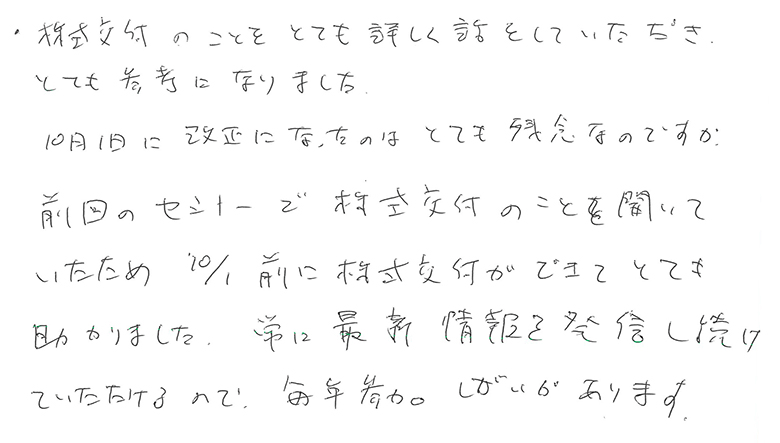 ・株式交付のことをとても詳しく話をしていただき、
とても参考になりました。
10月1日に改正になったのはとても残念なのですが、
前回のセミナーで株式交付のことを聞いて
いたため10/1前に株式交付ができてとても
助かりました。常に最新情報を発信し続け
ていただけるので、毎年参加しがいがあります。